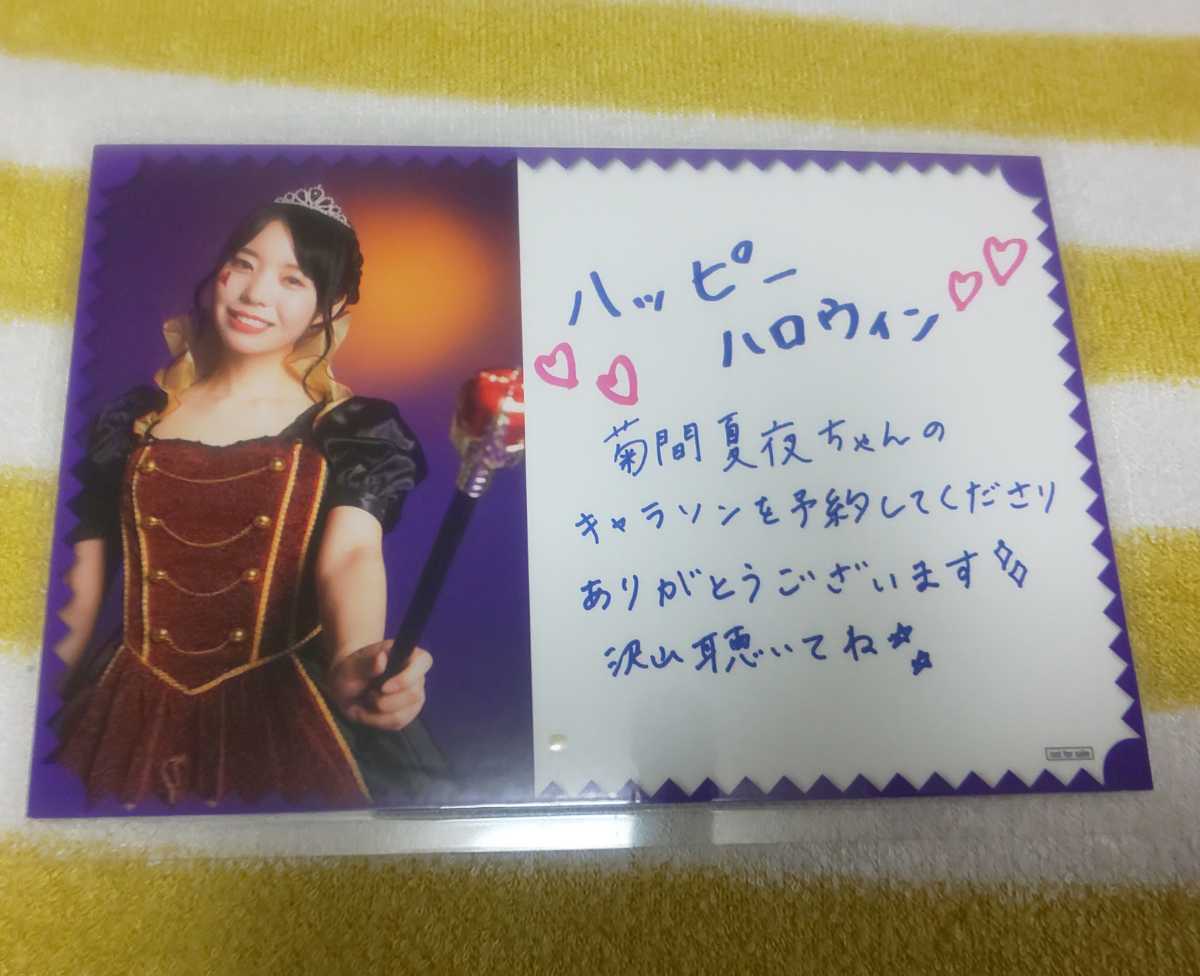 ハッピー
ハロウィン
菊間夏夜ちゃんの
キャラソンを予約してくださり
ありがとうございます
沢山聴いてね
not for sale